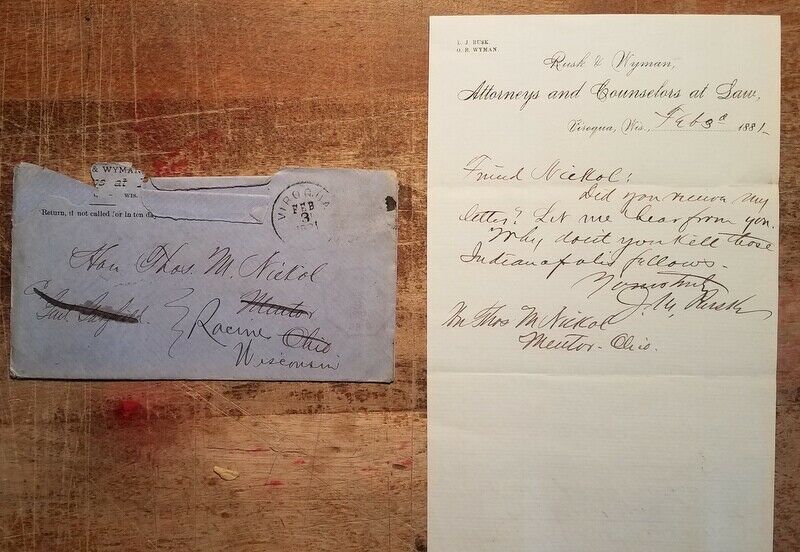 & WYMAN,
at
WIS.
Return, if not called for in ten da
VIROQUA
FEB
3
1881
Hon Thos. M. Nickol
Mentor
Racine Ohio
Wisconsin
L. J. RUSK.
O. B. WYMAN.
Rusk & Wyman,
Attorneys and Counselors at Law,
Viroqua, Wis., Feb 3d 1881
Friend Nickol:
Did you receive my
letter? Let me hear from you.
Why dont you kill those
Indianapolis fellows.
Yours Truly
J. M. Rusk
Mr Thos M Nickol
Mentor - Ohio.